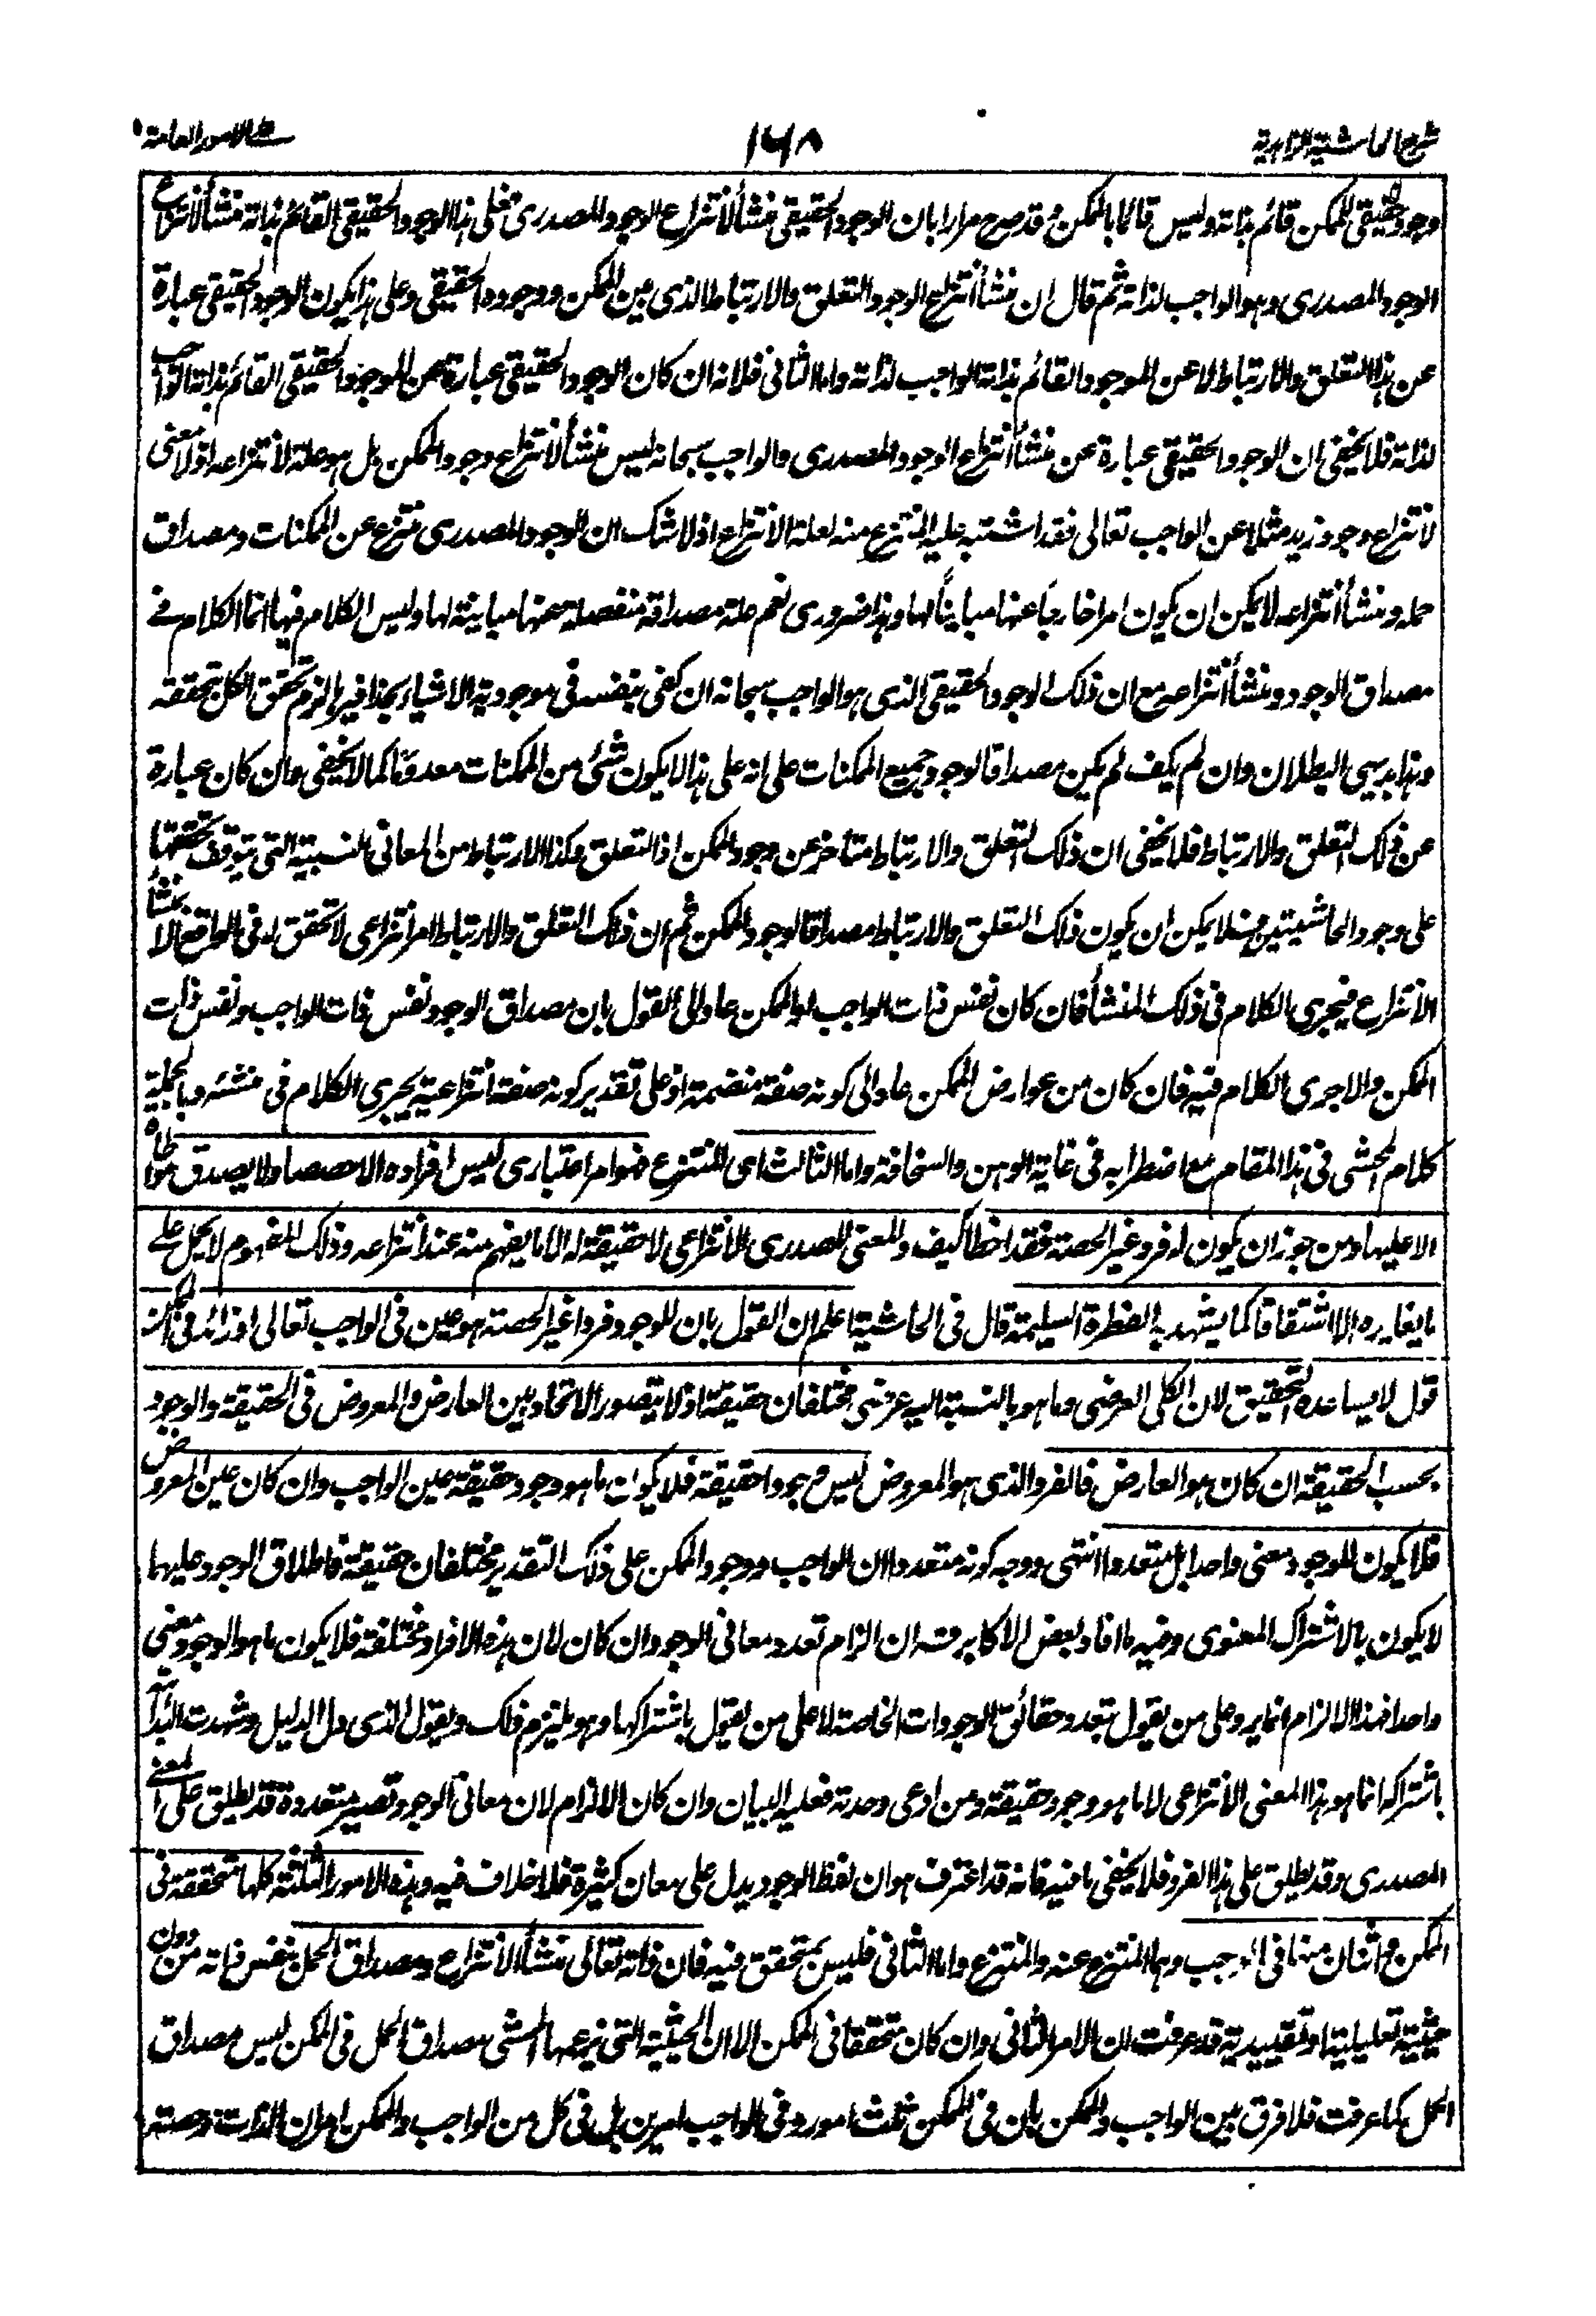 شرح الحاشية الزاهدية
١٦٨
على الامور العامة
وجود حقيقى للممكن قائم بذاته وليس قائما بالممكن وقد صرح مرارا بان الوجود الحقيقى منشأ لانتزاع الوجود المصدرى فعلى هذا الوجود الحقيقى القائم بذاته منشأ لانتزاع
الوجود المصدرى وهو الواجب لذاته ثم قال ان منشأ انتزاع الوجود التعلق والارتباط الذى بين الممكن ووجوده الحقيقى وعلى هذا يكون الوجود الحقيقى عبارة
عن هذا التعلق والارتباط لا عن الموجود القائم بذاته الواجب لذاته واما الثانى فلانه ان كان الوجود الحقيقى عبارة عن الموجود الحقيقى القائم بذاته الواجب
لذاته فلا يخفى ان الوجود الحقيقى عبارة عن منشأ انتزاع الوجود المصدرى والواجب سبحانه ليس منشأ لانتزاع وجود الممكن بل هو علة لانتزاعه اذ لا معنى
لانتزاع وجود زيد مثلا عن الواجب تعالى فقد اشتبه عليه المنتزع منه لعلة الانتزاع اذ لا شك ان الوجود المصدرى منتزع عن الممكنات ومصداق
حمله ومنشأ انتزاعه لا يمكن ان يكون امرا خارجا عنها مباينا لها وهذا ضرورى نعم علة مصداقه منفصلة عنها مباينة لها وليس الكلام فيها انما الكلام فى
مصداق الوجود ومنشأ انتزاعه مع ان ذلك الوجود الحقيقى الذى هو الواجب سبحانه ان كفى بنفسه فى موجودية الاشياء بحذافيرها لزم تحقق الكل بتحققه
وهذا بديهى البطلان وان لم يكف لم يكن مصداقا لوجود جميع الممكنات على انه على هذا لا يكون شئ من الممكنات معدوما كما لا يخفى وان كان عبارة
عن ذلك التعلق والارتباط فلا يخفى ان ذلك التعلق والارتباط متأخر عن وجود الممكن اذ التعلق وكذا الارتباط من المعانى النسبية التى يتوقف تحققها
على وجود الحاشيتين فلا يمكن ان يكون ذلك التعلق والارتباط مصداقا لوجود الممكن ثم ان ذلك التعلق والارتباط امر انتزاعى لا تحقق له فى الواقع الا بمنشأ
الانتزاع فيجرى الكلام فى ذلك المنشأ فان كان نفس ذات الواجب او الممكن عاد الى القول بان مصداق الوجود نفس ذات الواجب ونفس ذات
الممكن والا جرى الكلام فيه فان كان من عوارض الممكن عاد الى كونه صفة منضمة اذ على تقدير كونه صفة انتزاعية يجرى الكلام فى منشئه وبالجملة
كلام المحشى فى هذا المقام مع اضطرابه فى غاية الوهن والسخافة واما الثالث اى المنتزع فهو امر اعتبارى ليس افراده الا حصصا ولا يصدق مواطاة
الا عليها ومن جوز ان يكون له فرد غير الحصة فقد اخطأ كيف والمعنى المصدرى الانتزاعى لا حقيقة له الا ما يفهم منه عند انتزاعه وذلك المفهوم لا يحمل على
ما يغايره الا اشتقاقا كما يشهد به الفطرة السليمة قال فى الحاشية اعلم ان القول بان للوجود فردا غير الحصة هو عين فى الواجب تعالى او زائد فى الممكن
قول لا يساعده التحقيق لان الكلى العرضى وما هو بالنسبة اليه عرضى مختلفان حقيقة اذ لا يتصور الاتحاد بين العارض والمعروض فى الحقيقة والوجود
بحسب الحقيقة ان كان هو العارض فالفرد الذى هو المعروض ليس وجودا حقيقة فلا يكون ما هو وجود حقيقة عين الواجب وان كان عين المعروض
فلا يكون للوجود معنى واحدا بل متعددا انتهى ووجه كونه متعددا ان الواجب ووجود الممكن على ذلك التقدير مختلفان حقيقة فاطلاق الوجود عليهما
لا يكون بالاشتراك المعنوى وفيه ما افاد بعض الاكابر قده ان الزام تعدد معانى الوجود ان كان لان هذه الافراد مختلفة فلا يكون ما هو الوجود معنى
واحدا فهذا الالزام انما يرد على من يقول بتعدد حقائق الوجودات الخاصة لا على من يقول باشتراكها وهو يلتزم ذلك ويقول الذى دل الدليل وشهدت البداهة
باشتراكه انما هو هذا المعنى الانتزاعى لا ما هو وجود حقيقة ومن ادعى وحدته فعليه البيان وان كان الالزام لان معانى الوجود تصير متعددة قد يطلق على المعنى
المصدرى وقد يطلق على هذا الفرد فلا يخفى ما فيه فانه قد اعترف هو ان لفظ الوجود يدل على معان كثيرة فلا خلاف فيه وهذه الامور الثلثة كلها متحققة فى
الممكن واثنان منها فى الواجب وهما المنتزع عنه والمنتزع واما الثانى فليس بمتحقق فيه فان ذاته تعالى منشأ الانتزاع ومصداق الحمل بنفس ذاته من دون
حيثية تعليلية او تقييدية قد عرفت ان الامر الثانى وان كان متحققا فى الممكن الا ان الحيثية التى يزعمها المحشى مصداق الحمل فى الممكن ليس مصداق
الحمل كما عرفت فلا فرق بين الواجب والممكن بان فى الممكن ثلث امور وفى الواجب امرين بل فى كل من الواجب والممكن امران الذات وحصته